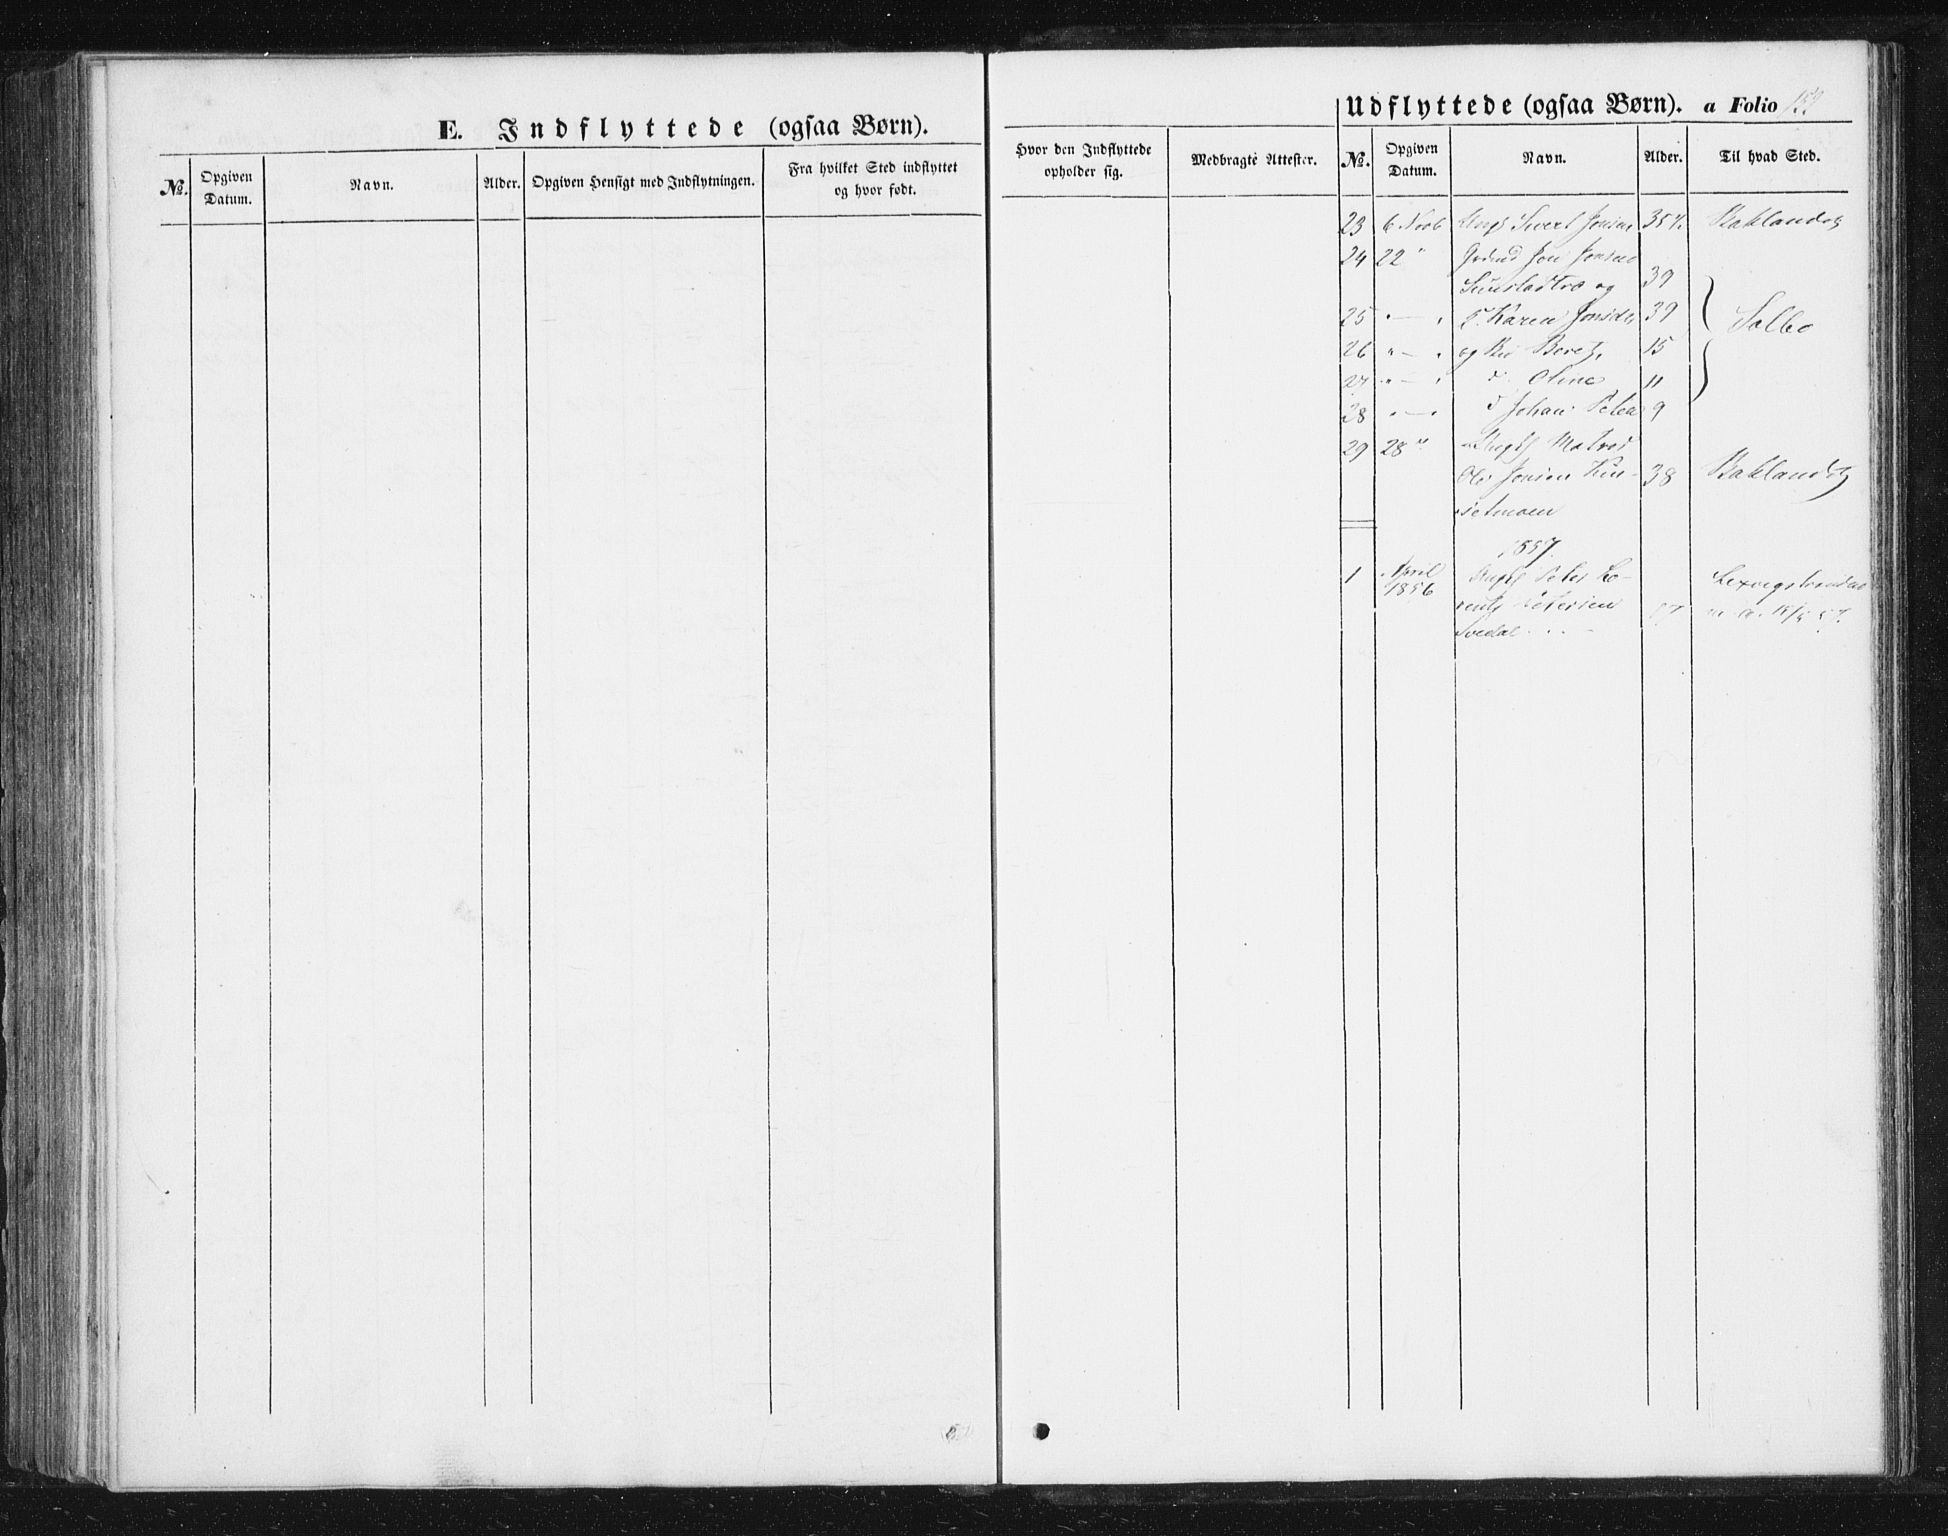 E. Indflyttede (ogsaa Børn).
№.
Opgiven Datum.
Navn.
Alder.
Opgiven Hensigt med Indflytningen.
Fra hvilket Sted indflyttet og hvor født.
Hvor den Indflyttede opholder sig.
Medbragte Attester.
Udflyttede (ogsaa Børn). a Folio 159
№.
Opgiven Datum.
Navn.
Alder.
Til hvad Sted.
23 6 Novb Sivert Jonsen 35 Baklandet
24 22 " Jon Jonsen
og 39
25 " — " Karen Jonsd. 39 Selbo
26 " — " og Beret 15
27 " — " d. Oline 11
28 " — " d Johan Peter 9
29 28 "
Ole Jonsen 38 Baklandet
1857.
1 April 1856 Peter Lo-
rents Petersen